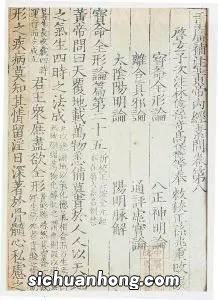 重廣補注黃帝內經素問卷第八
啓玄子次注林億孫奇高保衡等奉敕校正孫兆重改誤
寶命全形論 八正神明論
離合真邪論 通評虛實論
太陰陽明論 陽明脈解
寶命全形論篇第二十五
黃帝問曰天覆地載萬物悉備莫貴於人人以天地
之氣生四時之法成
君王衆庶盡欲全形
形之疾病莫知其情留淫日深著於骨髓心私慮之
sichuanhong.com